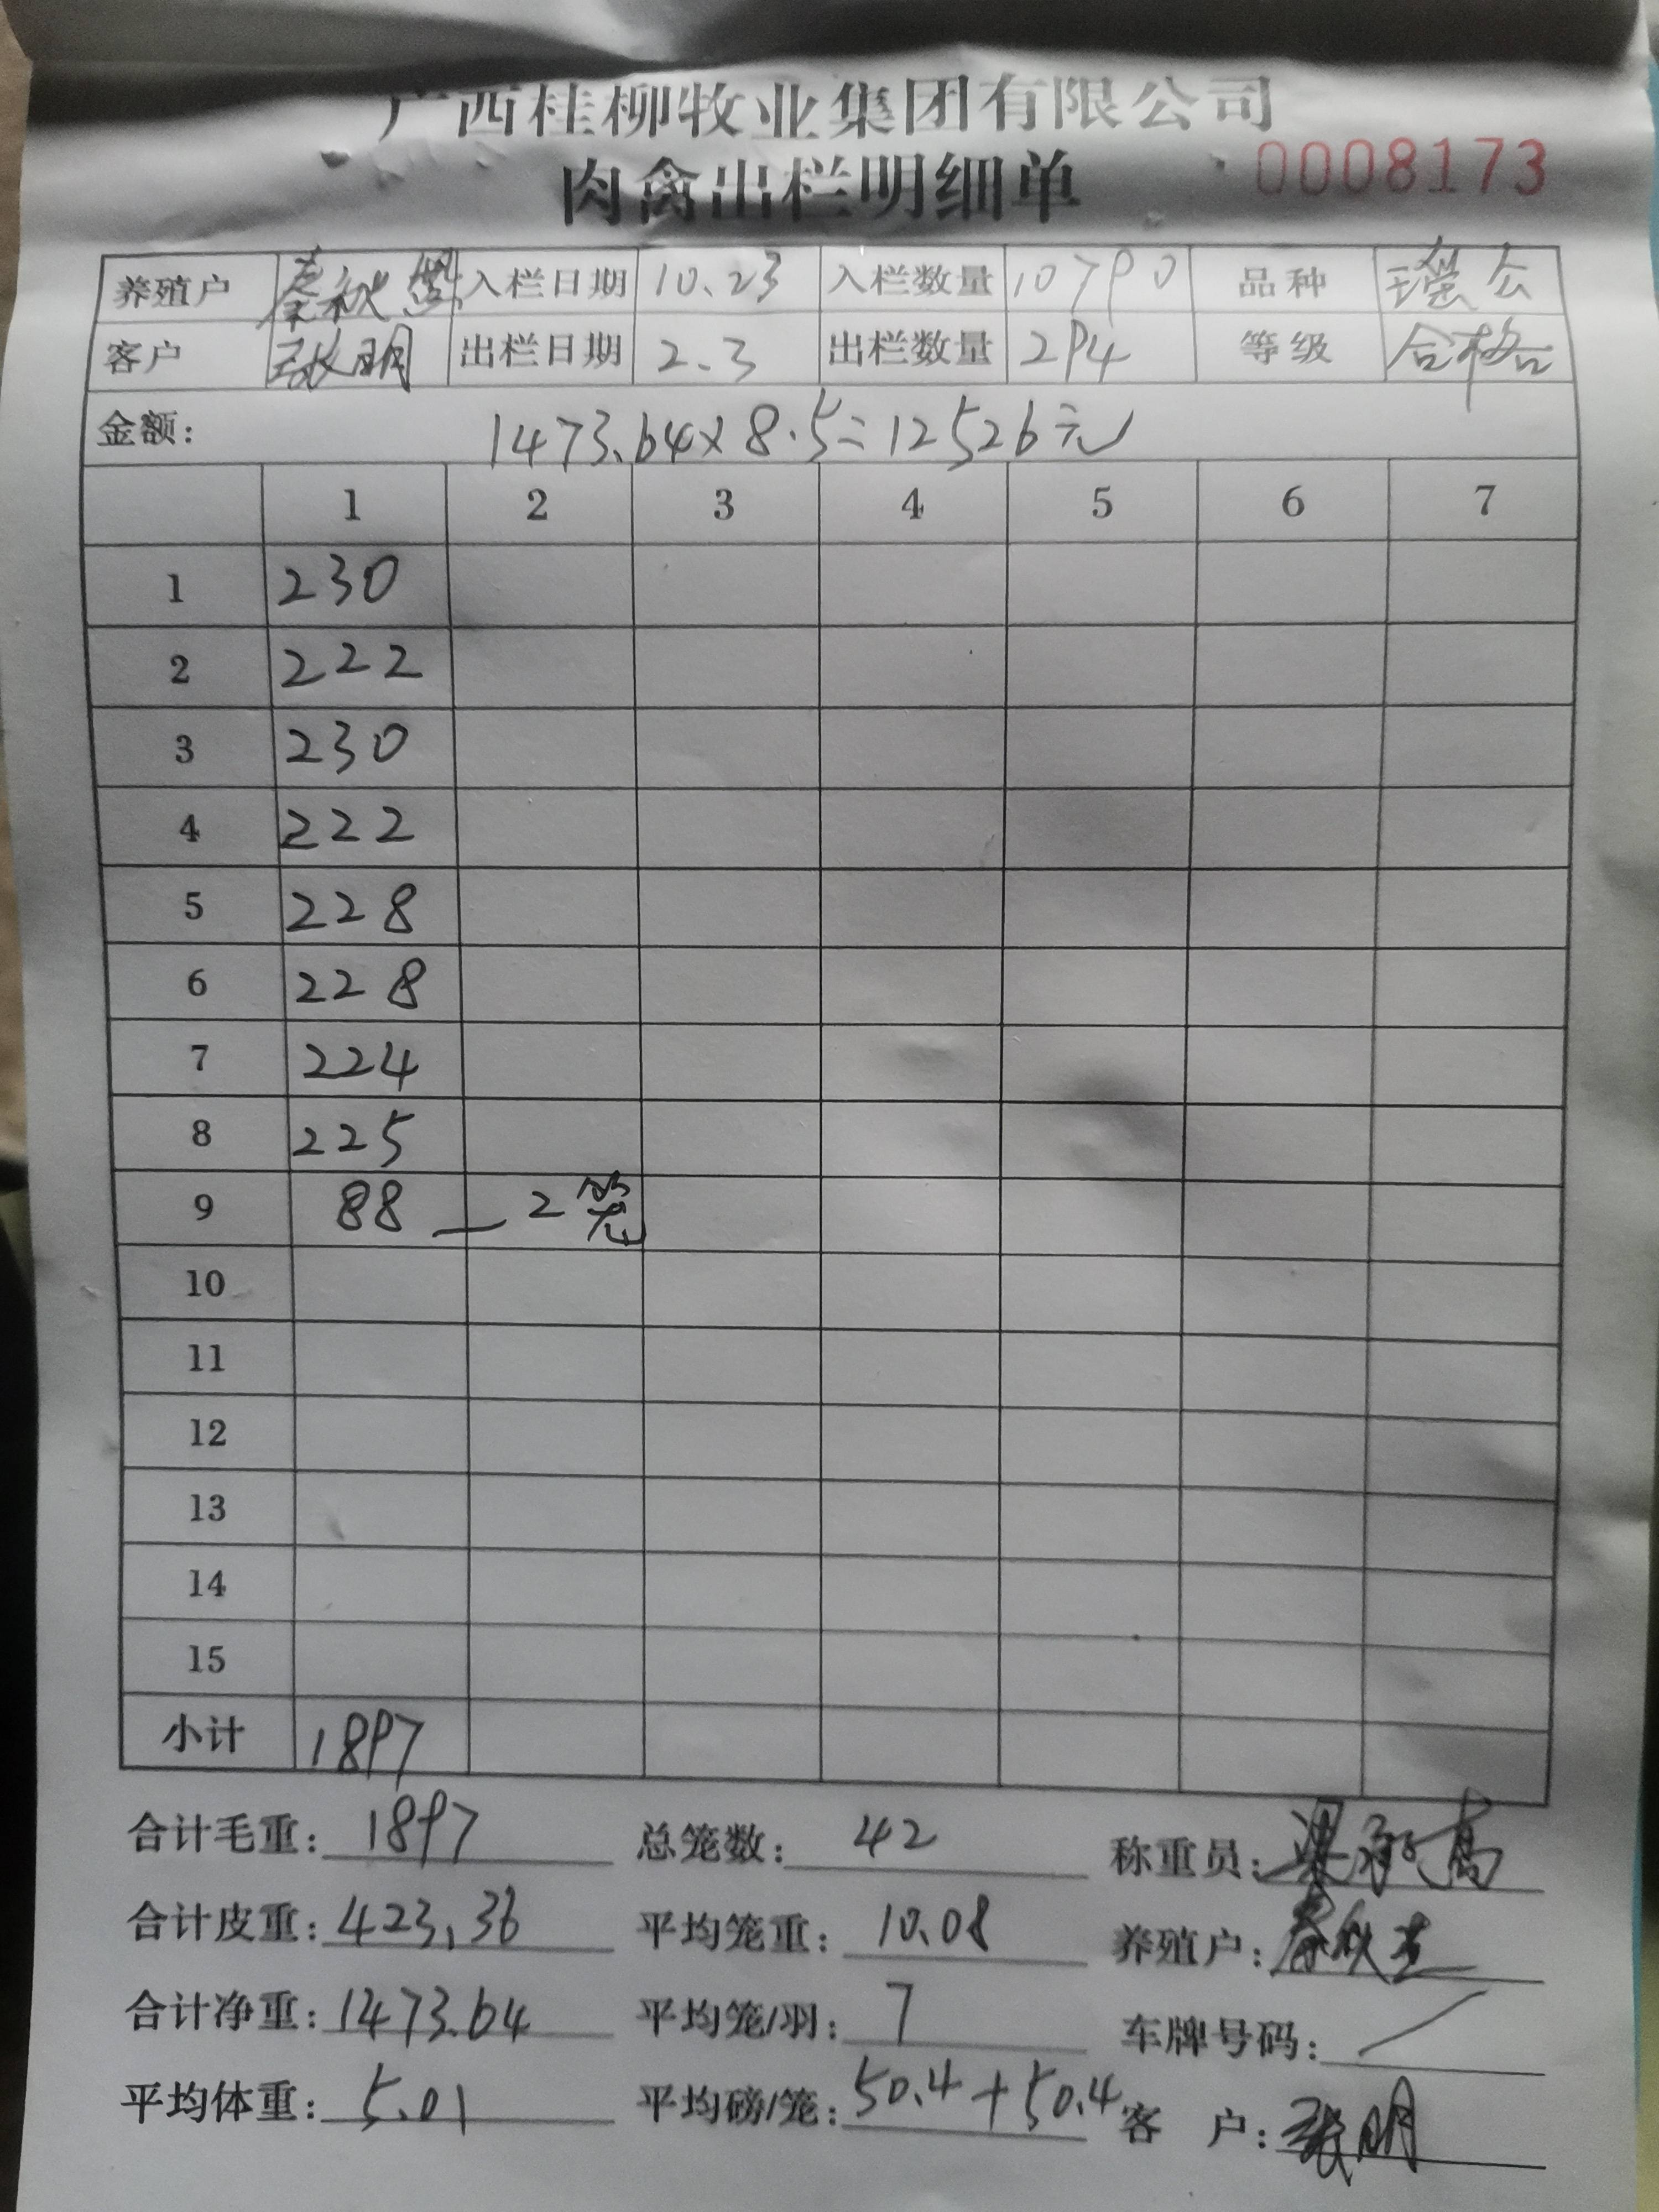 广西桂柳牧业集团有限公司
肉禽出栏明细单 0008173
养殖户 秦秋 入栏日期 10.23 入栏数量 10790 品种 瑶公
客户 张明 出栏日期 2.3 出栏数量 294 等级 合格
金额: 1473.64×8.5=12526元
1 2 3 4 5 6 7
1 230
2 222
3 230
4 222
5 228
6 228
7 224
8 225
9 88 — 2笼
10
11
12
13
14
15
小计 1897
合计毛重: 1897 总笼数: 42 称重员:
合计皮重: 423.36 平均笼重: 10.08 养殖户: 秦秋
合计净重: 1473.64 平均笼/羽: 7 车牌号码: /
平均体重: 5.01 平均磅/笼: 50.4+50.4 客 户: 张明